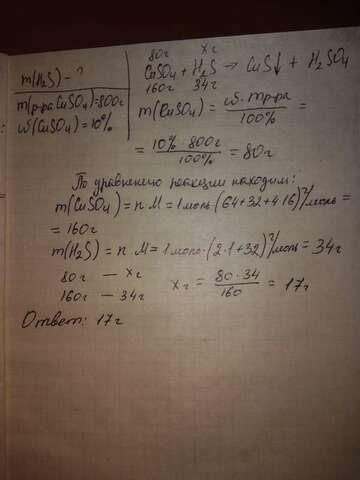 m(H₂S) - ?
m(р-ра CuSO₄)=800г
ω(CuSO₄)=10%
80г xг
CuSO₄ + H₂S → CuS↓ + H₂SO₄
160г 34г
m(CuSO₄) = ω·mр-ра / 100% =
= 10% · 800г / 100% = 80г
По уравнению реакции находим:
m(CuSO₄) = n·M = 1моль·(64+32+4·16)г/моль =
= 160г
m(H₂S) = n·M = 1моль·(2·1+32)г/моль = 34г
80г — xг
160г — 34г
xг = 80·34 / 160 = 17г
Ответ: 17г